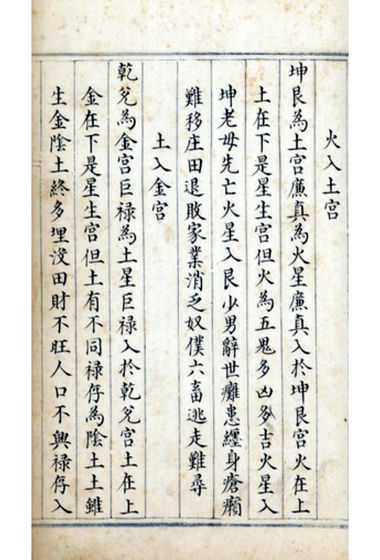 火入土宮
坤艮為土宮廉真為火星廉真入於坤艮宮火在上
土在下是星生宮但火為五鬼多凶多吉火星入
坤老母先亡火星入艮少男辭世癱患纏身瘡癩
難移庄田退敗家業消乏奴僕六畜逃走難尋
土入金宮
乾兌為金宮巨禄為土星巨禄入於乾兌宮土在上
金在下是星生宮但土有不同禄存為陰土土雖
生金陰土終多埋没田財不旺人口不興禄存入